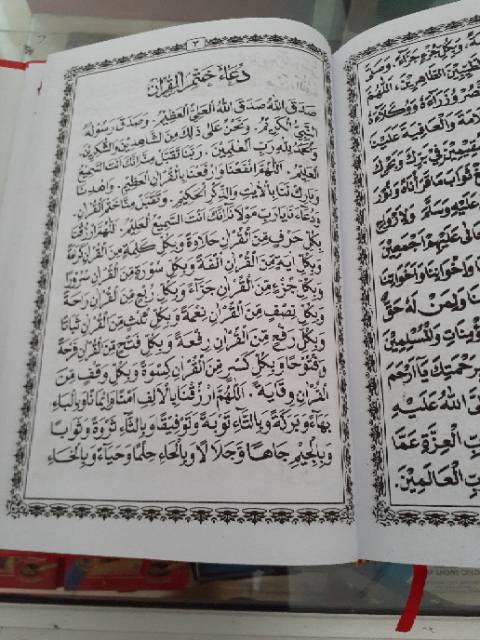 ٣
دُعَاءُ خَتْمِ الْقُرْآنِ
صَدَقَ اللهُ صَدَقَ اللهُ الْعَلِيُّ الْعَظِيْمُ. وَصَدَقَ رَسُوْلُهُ
النَّبِيُّ الْكَرِيْمُ. وَنَحْنُ عَلَى ذٰلِكَ مِنَ الشَّاهِدِيْنَ وَالشّٰكِرِيْنَ.
وَالْحَمْدُ لِلّٰهِ رَبِّ الْعٰلَمِيْنَ. رَبَّنَا تَقَبَّلْ مِنَّا إِنَّكَ أَنْتَ السَّمِيْعُ
الْعَلِيْمُ. اَللّٰهُمَّ انْفَعْنَا وَارْفَعْنَا بِالْقُرْاٰنِ الْعَظِيْمِ. وَاهْدِنَا
وَبَارِكْ لَنَا بِالْاٰيٰتِ وَالذِّكْرِ الْحَكِيْمِ. وَتَقَبَّلْ مِنَّا خَتْمَ الْقُرْاٰنِ.
وَدُعَاءَنَا يَارَبَّ مَوْلَانَا إِنَّكَ أَنْتَ السَّمِيْعُ الْعَلِيْمُ. اَللّٰهُمَّ ارْزُقْنَا
بِكُلِّ حَرْفٍ مِنَ الْقُرْاٰنِ حَلَاوَةً وَبِكُلِّ كَلِمَةٍ مِنَ الْقُرْاٰنِ كَرَامَةً
وَبِكُلِّ اٰيَةٍ مِنَ الْقُرْاٰنِ اُلْفَةً وَبِكُلِّ سُوْرَةٍ مِنَ الْقُرْاٰنِ سُرُوْرًا
وَبِكُلِّ جُزْءٍ مِنَ الْقُرْاٰنِ جَزَاءً وَبِكُلِّ رُبُعٍ مِنَ الْقُرْاٰنِ رَاحَةً
وَبِكُلِّ نِصْفٍ مِنَ الْقُرْاٰنِ نِعْمَةً وَبِكُلِّ ثُلُثٍ مِنَ الْقُرْاٰنِ ثَبَاتًا
وَبِكُلِّ رَفْعٍ مِنَ الْقُرْاٰنِ رِفْعَةً وَبِكُلِّ فَتْحٍ مِنَ الْقُرْاٰنِ فَرْحَةً
وَفُتُوْحًا وَبِكُلِّ كَسْرٍ مِنَ الْقُرْاٰنِ كِسْوَةً وَبِكُلِّ وَقْفٍ مِنَ
الْقُرْاٰنِ وِقَايَةً. اَللّٰهُمَّ ارْزُقْنَا بِالْاَلِفِ اَمْنًا وَاِيْمَانًا وَبِالْبَاءِ
بَهَاءً وَبَرَكَةً وَبِالتَّاءِ تَوْبَةً وَتَوْفِيْقًا وَبِالثَّاءِ ثَرْوَةً وَثَوَابًا
وَبِالْجِيْمِ جَاهًا وَّجَلَالًا وَبِالْحَاءِ حِلْمًا وَحَيَاءً وَبِالْخَاءِ
وَبِكُلِّ جُزْءٍ جَزَاءً. وَصَلَّى
الطَّيِّبِيْنَ الطَّاهِرِيْنَ. اَللّٰهُمَّ
وُزَرَاءَهُ وَوُكَلَاءَهُ
وَالْعَافِيَةَ عَلَيْنَا
ثَوَابَ مَا قَرَأْنَاهُ وَنُوْرَ
عَلَيْهِ وَسَلَّمَ
عَلَيْهِمْ اَجْمَعِيْنَ
وَاَخَوَاتِنَا
وَلِمَنْ لَهُ حَقٌّ
وَالْمُسْلِمِيْنَ
بِرَحْمَتِكَ يَا اَرْحَمَ
اللهُ عَلَيْهِ
الْعِزَّةِ عَمَّا
الْعَالَمِيْنَ.